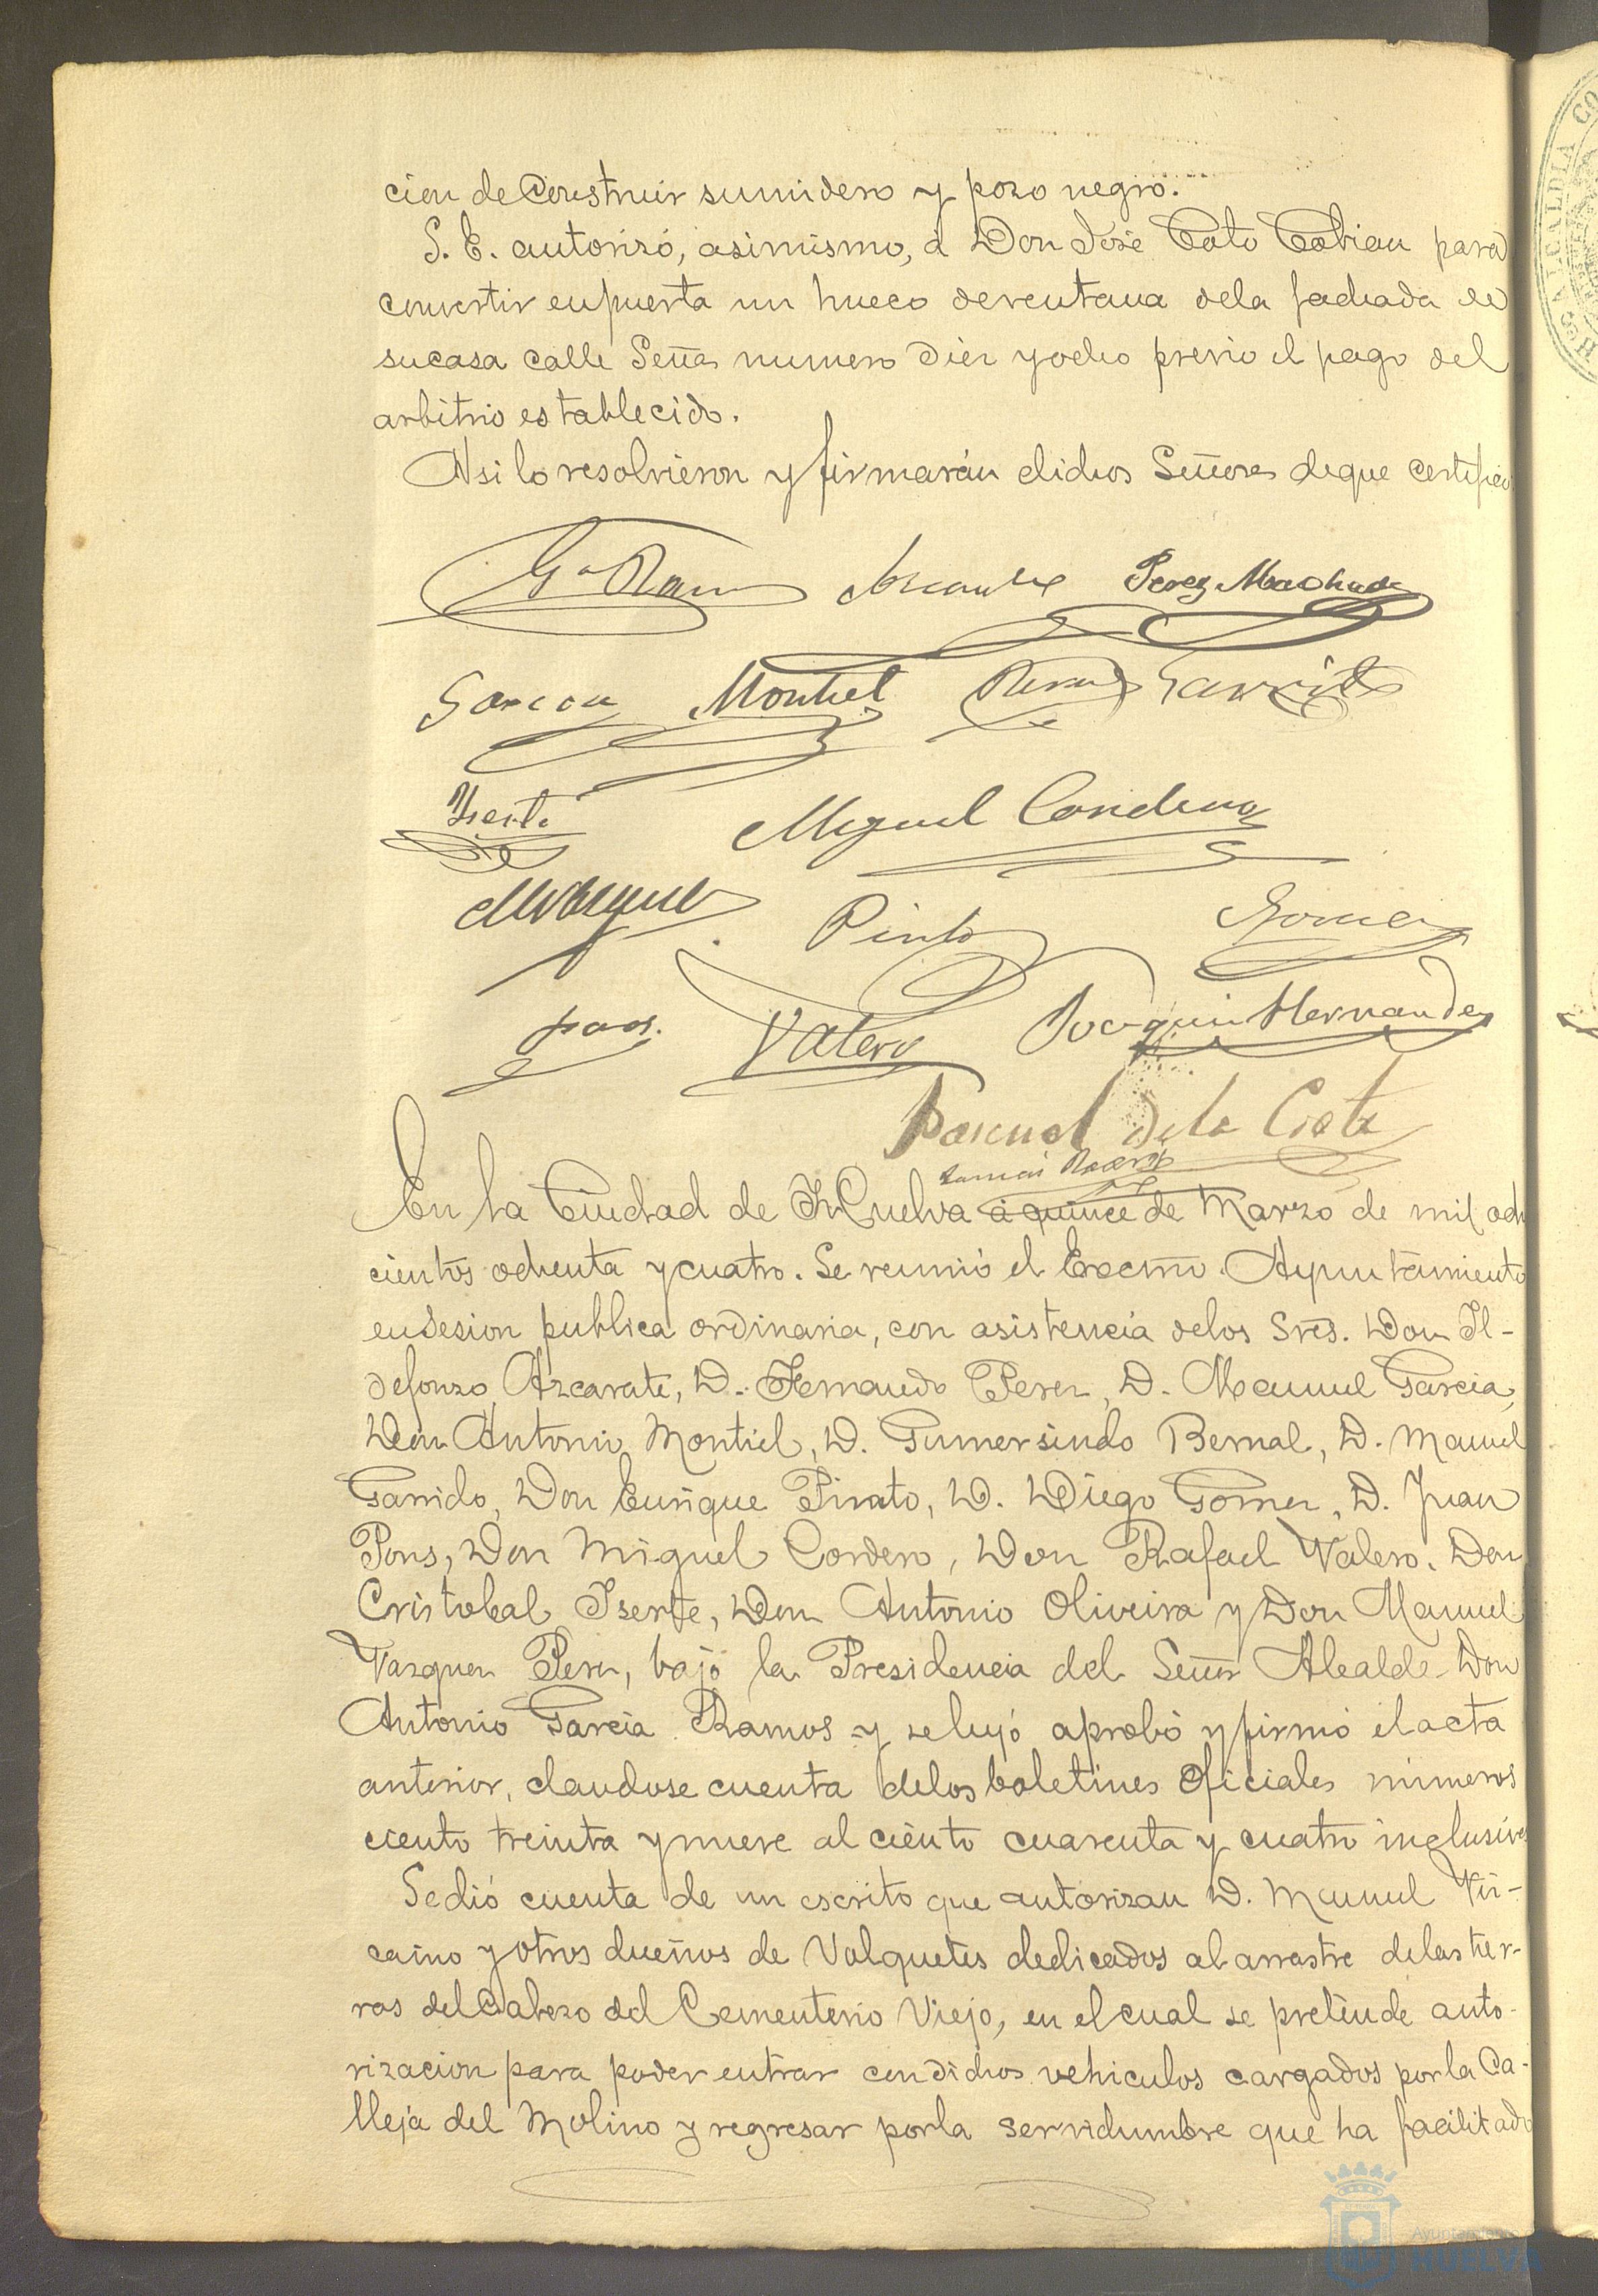 cion de Construir sumidero y pozo negro.
S. E. autorizó, asimismo, á Don José Coto Cobian para
convertir en puerta un hueco de ventana de la fachada de
su casa calle Señas numero diez y ocho previo el pago del
arbitrio establecido.
Asi lo resolvieron y firmarán dichos Señores de que certifico
Ga Ramos Azcarate Perez Machado
Garcia Montiel Bernal Garrido
Iserte Miguel Cordero
M Vazquez Pinto Gomez
pons. Valero Joaquin Hernandez
Pascual de la Costa
En la Ciudad de Huelva á quince de Marzo de mil ocho
cientos ochenta y cuatro. Se reunió el Excmo. Ayuntamiento
en sesion publica ordinaria, con asistencia de los Sres. Don Il-
defonzo Azcarate, D. Fernando Perez, D. Manuel Garcia,
Don Antonio Montiel, D. Gumersindo Bernal, D. Manuel
Garrido, Don Enrique Pinto, D. Diego Gomez, D. Juan
Pons, Don Miguel Cordero, Don Rafael Valero. Don
Cristobal Iserte, Don Antonio Oliveira y Don Manuel
Vazquez Perez, bajo la Presidencia del Señor Alcalde Don
Antonio Garcia Ramos y se leyó aprobó y firmó el acta
anterior, dandose cuenta de los boletines Oficiales números
ciento treinta y nueve al ciento cuarenta y cuatro inclusives
Se dió cuenta de un escrito que autorizan D. Manuel Viz-
caino y otros dueños de Volquetes dedicados al arrastre de las tier-
ras del Cabezo del Cementerio Viejo, en el cual se pretende auto-
rizacion para poder entrar con dichos vehiculos cargados por la Ca-
lleja del Molino y regresar por la servidumbre que ha facilitado
Ayuntamiento
HUELVA
ALCALDIA